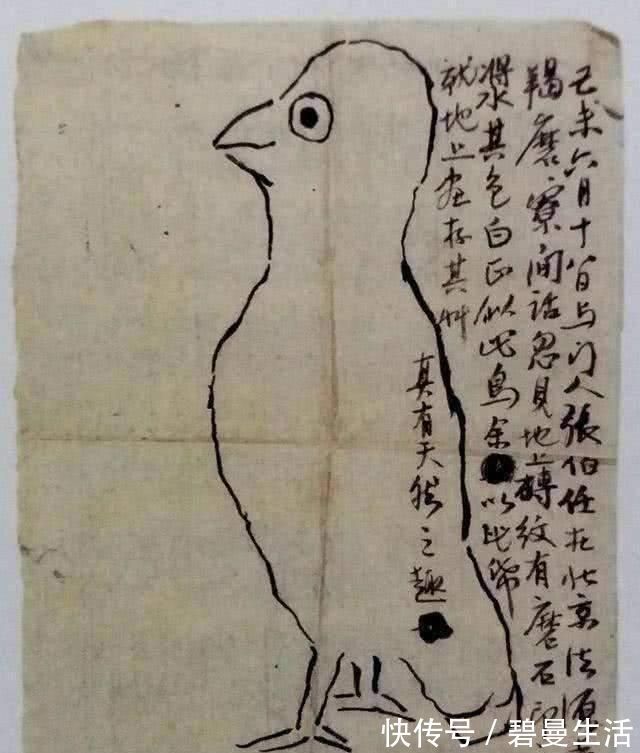 己未六月十八日与门人張伯任在北京法源
羯磨寮閒話忽見地上磚紋有磨石印
漿其色白正似此鳥余以此紙
就地上画存其艸
真有天然之趣
快传号 / 碧曼生活